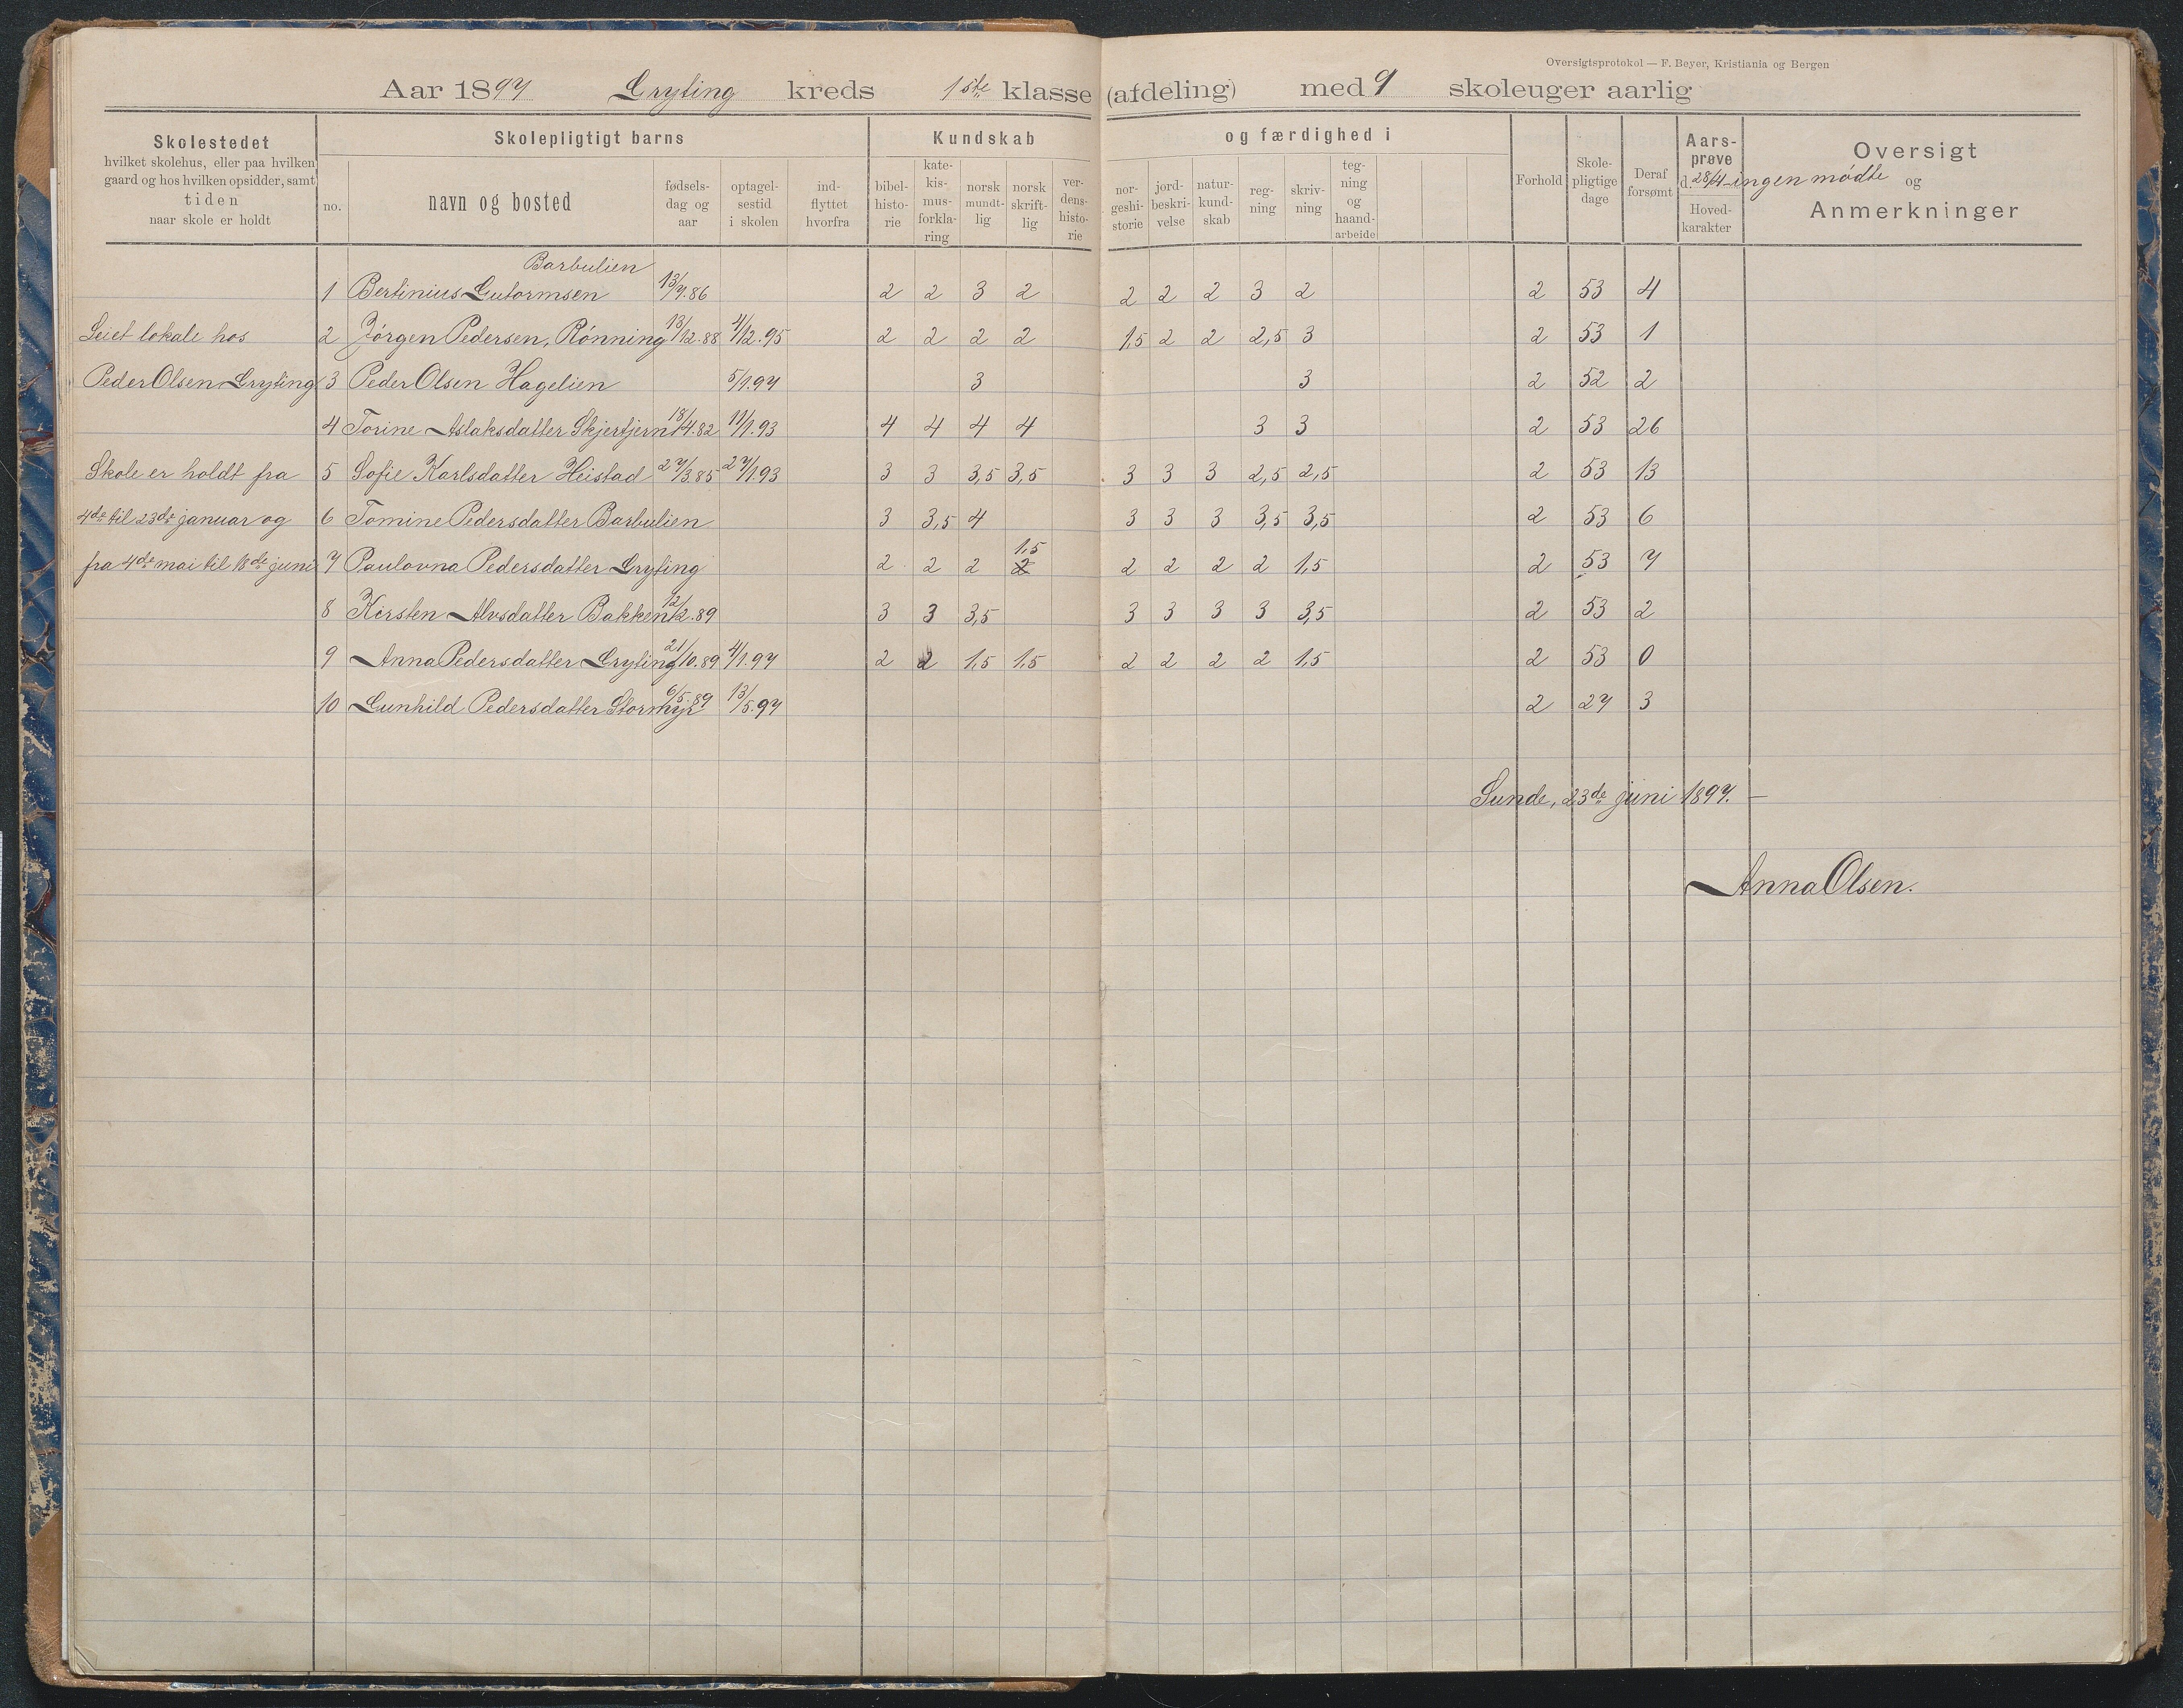 Oversigtsprotokol — F. Beyer, Kristiania og Bergen
Aar 1897 Gryting kreds 1ste klasse (afdeling) med 9 skoleuger aarlig
Skolestedet
hvilket skolehus, eller paa hvilken
gaard og hos hvilken opsidder, samt
tiden
naar skole er holdt
Skolepligtigt barns
no.
navn og bosted
fødsels-
dag og
aar
optagel-
sestid
i skolen
ind-
flyttet
hvorfra
Kundskab og færdighed i
bibel-
histo-
rie
kate-
kis-
mus-
forkla-
ring
norsk
mundt-
lig
norsk
skrift-
lig
ver-
dens-
histo-
rie
nor-
geshi-
storie
jord-
beskri-
velse
natur-
kund-
skab
reg-
ning
skriv-
ning
teg-
ning
og
haand-
arbeide
Forhold
Skole-
pligtige
dage
Deraf
forsømt
Aars-
prøve
d. 28/4 - ingen mødte
Hoved-
karakter
Oversigt
og
Anmerkninger
Barbulien
1 Bertinius Gutormsen 13/7.86 2 2 3 2 2 2 2 3 2 2 53 4
Leiet lokale hos 2 Jørgen Pedersen, Rønning 13/12.88 4/12.95 2 2 2 2 1,5 2 2 2,5 3 2 53 1
Peder Olsen Gryting 3 Peder Olsen Hagelien 5/1.97 3 3 2 52 2
4 Torine Aslaksdatter Skjertjern 18/4.82 11/1.93 4 4 4 4 3 3 2 53 26
Skole er holdt fra 5 Sofie Karlsdatter Heistad 27/3.85 27/1.93 3 3 3,5 3,5 3 3 3 2,5 2,5 2 53 13
4de til 23de januar og 6 Tomine Pedersdatter Barbulien 3 3,5 4 3 3 3 3,5 3,5 2 53 6
1,5
fra 4de mai til 18de juni 7 Paulovna Pedersdatter Gryting 2 2 2 2 2 2 2 2 1,5 2 53 7
8 Kirsten Alvsdatter Bakken 12/2.89 3 3 3,5 3 3 3 3 3,5 2 53 2
9 Anna Pedersdatter Gryting 21/10.89 4/1.97 2 2 1,5 1,5 2 2 2 2 1,5 2 53 0
10 Gunhild Pedersdatter Stormyr 6/5.89 13/5.97 2 27 3
Sunde, 23de juni 1897. —
Anna Olsen.